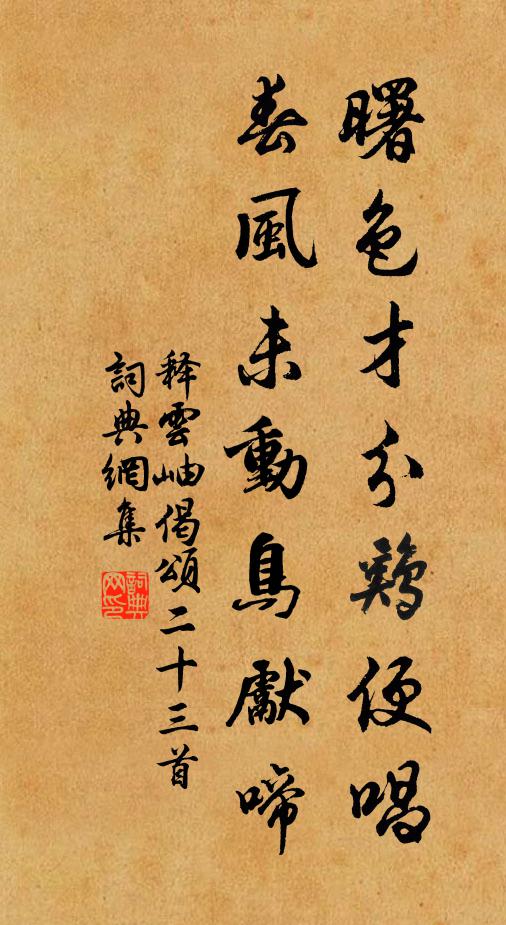 曙色才分鷄便唱
春風未動鳥獻啼
释雲岫偈頌二十三首
詞典網集
詞典网印